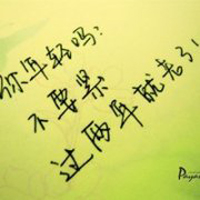 你年轻吗?
不要紧
过两年就老了!
Payar